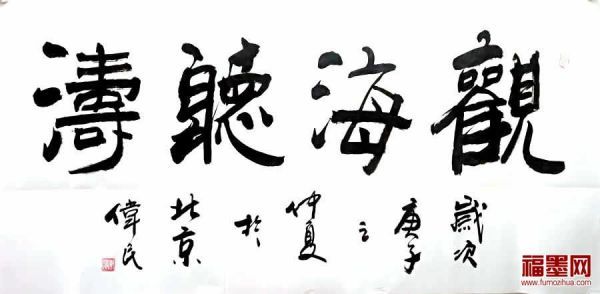 觀海聽濤
歲次
庚子
之
仲夏
於
北京
偉民
福墨网
www.fumozihua.com